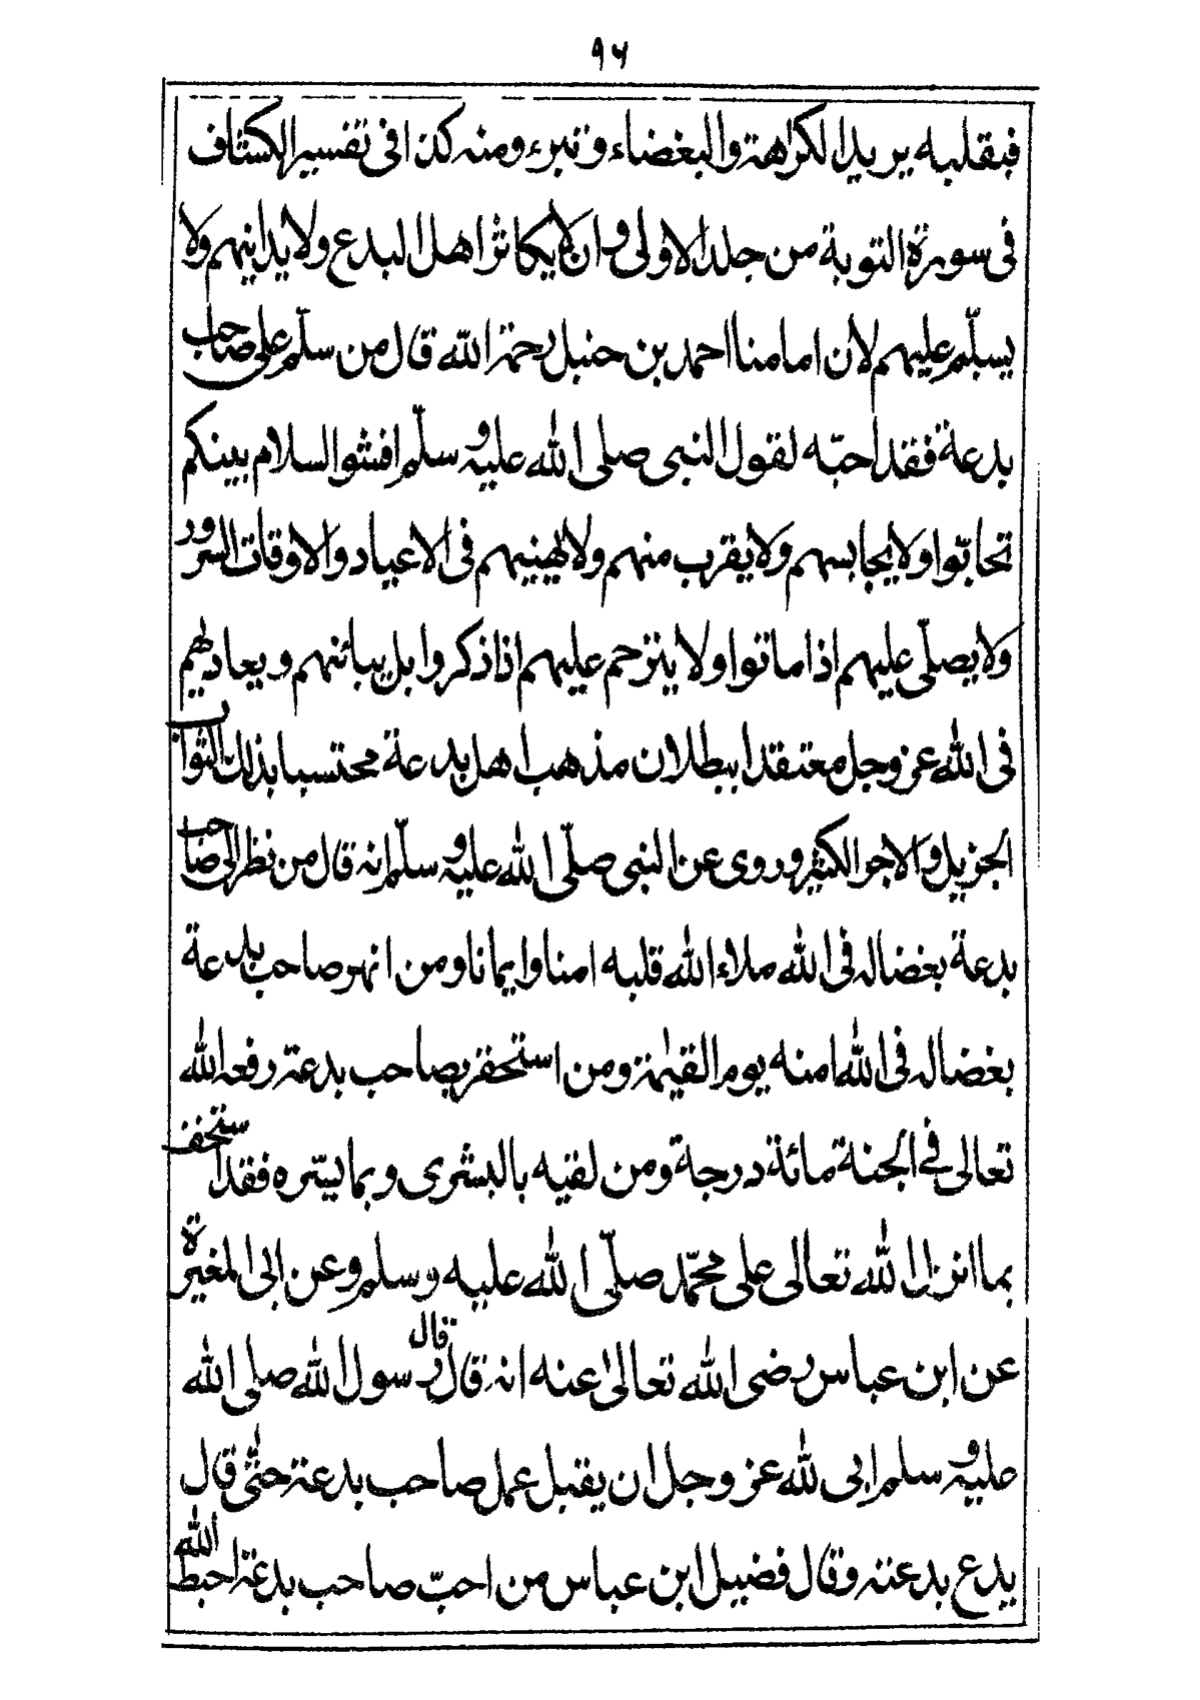 ٩٦
فبقلبه يريد الكراهة والبغضاء وتبرء ومنه كذا فى تفسير الكشاف
فى سورة التوبة من جلد الاولى وان لا يكاثر اهل البدع ولا يدانيهم ولا
يسلّم عليهم لان امامنا احمد بن حنبل رحمة الله قال من سلّم على صاحب
بدعة فقد احبّه لقول النبى صلى الله عليه وسلّم افشوا السلام بينكم
تحابّوا ولا يجابسهم ولا يقرب منهم ولا يهنيهم فى الاعياد والاوقات السرور
ولا يصلّى عليهم اذا ماتوا ولا يترحم عليهم اذا ذكروا بل يبائنهم ويعاديهم
فى الله عز وجل معتقدا ببطلان مذهب اهل بدعة محتسبا بذلك الثواب
الجزيل والاجر الكثير وروى عن النبى صلّى الله عليه وسلّم انه قال من نظر الى صاحب
بدعة بغضاله فى الله ملاء الله قلبه امنا وايمانا ومن انهر صاحب بدعة
بغضاله فى الله امنه يوم القيٰمة ومن استحقر بصاحب بدعة رفعه الله
تعالى فى الجنة مائة درجة ومن لقيه بالبشرى وبما يسّره فقد استخف
بما انزل الله تعالى على محمّد صلّى الله عليه وسلم وعن ابى المغيرة
عن ابن عباس رضى الله تعالىٰ عنه انه قال قال رسول الله صلى الله
عليه وسلم ابى الله عز وجل ان يقبل عمل صاحب بدعة حتّٰى قال
يدع بدعته وقال فضيل ابن عباس من احبّ صاحب بدعة احبط الله